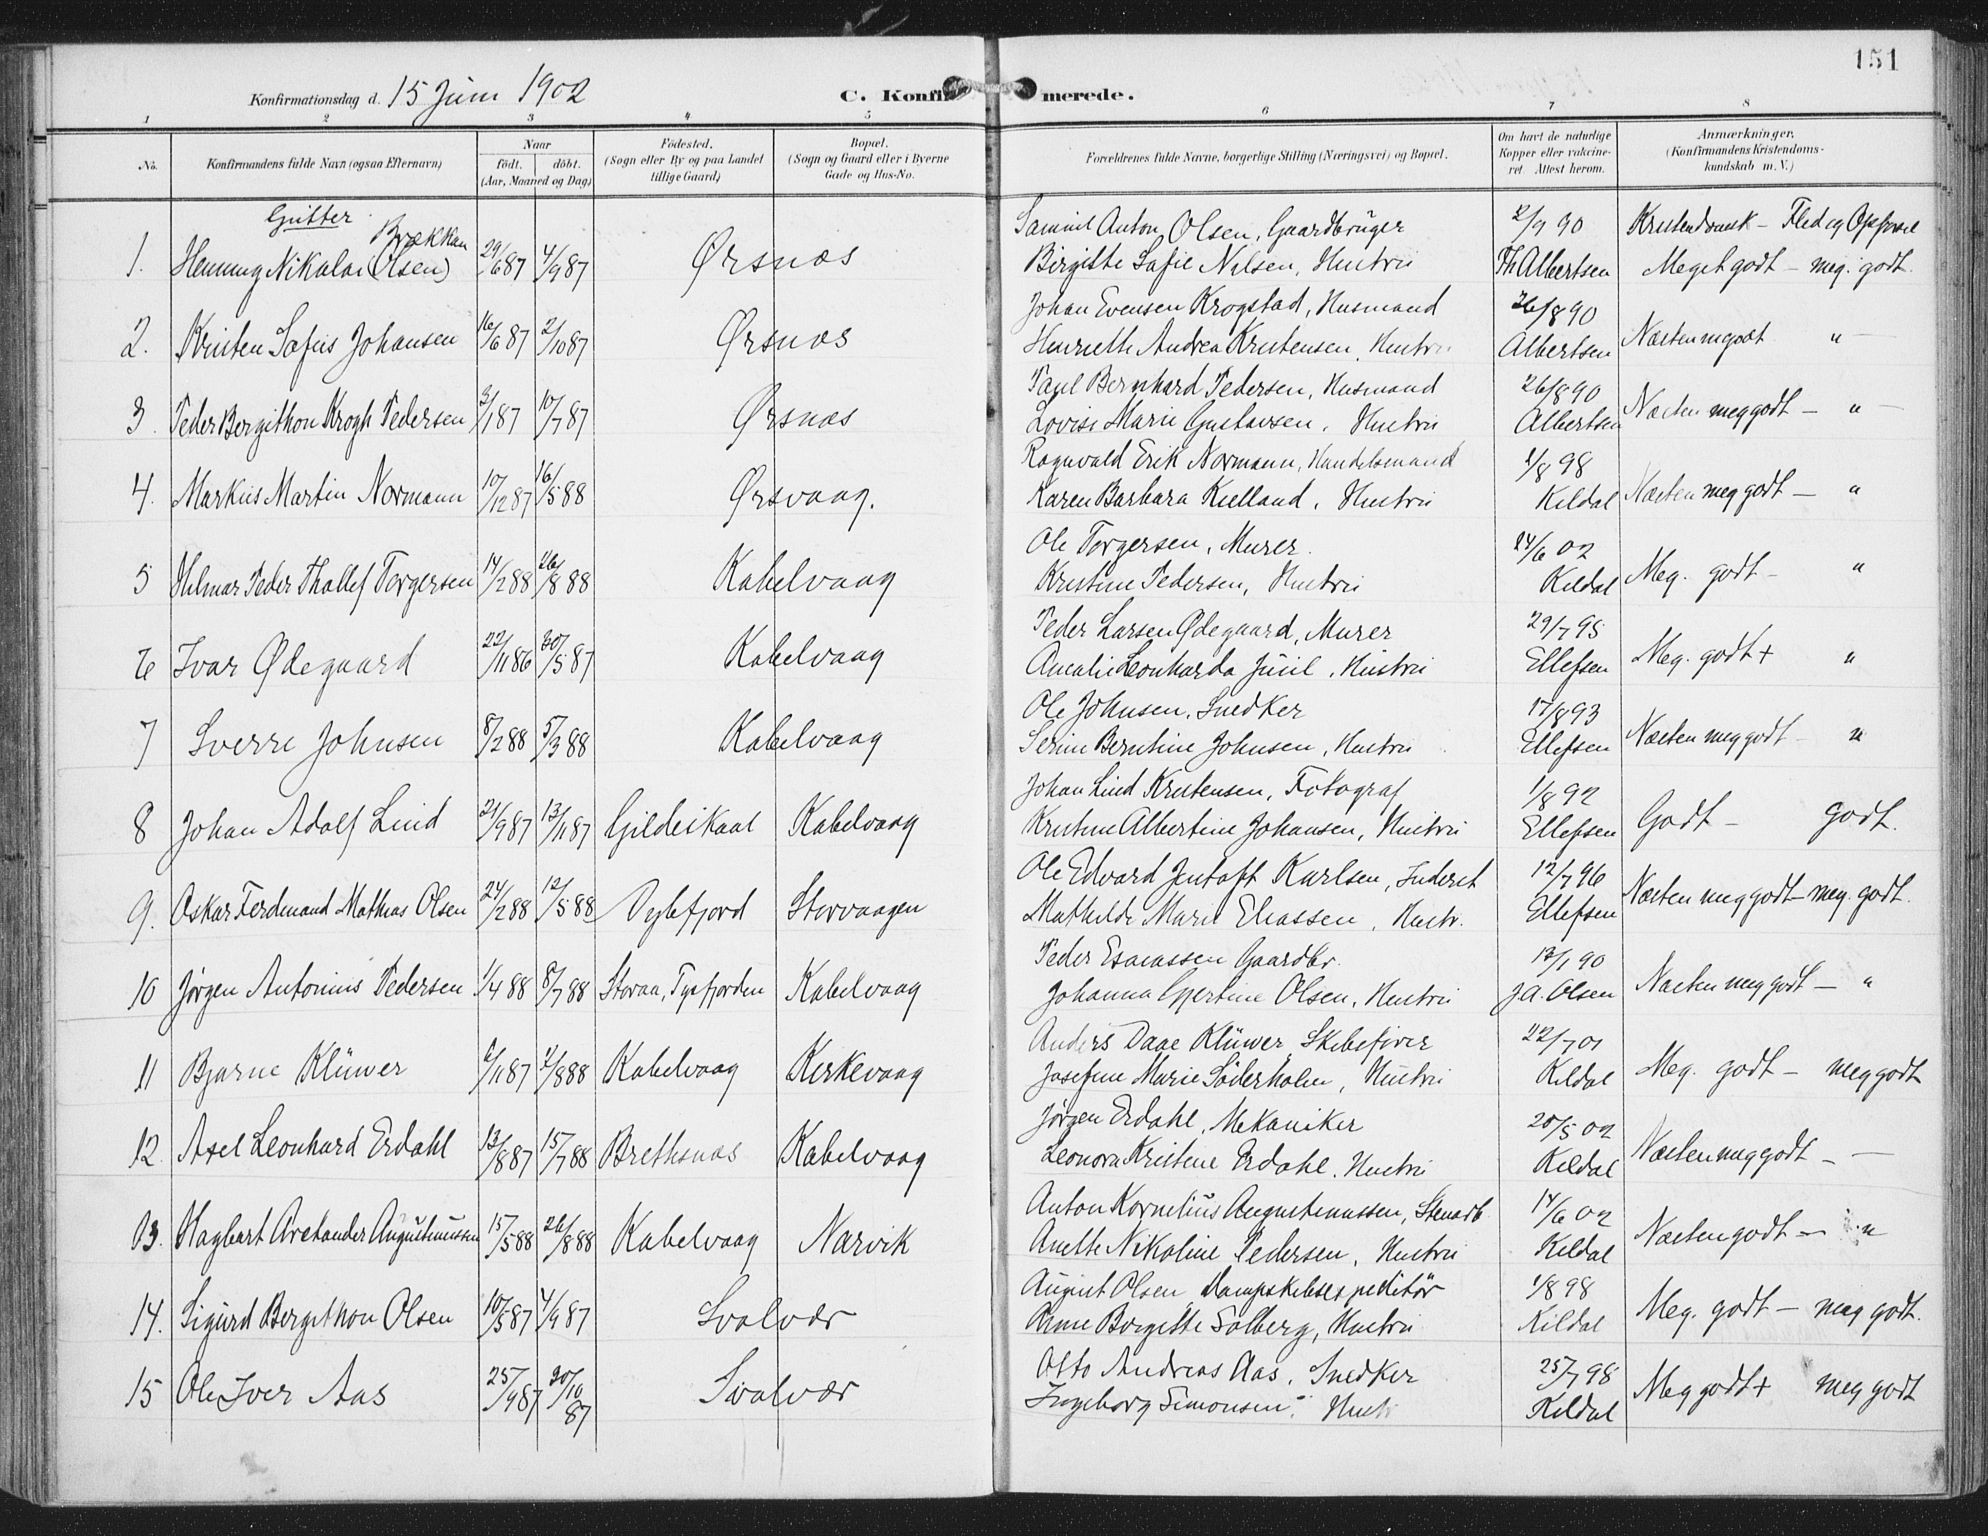 151
Konfirmationsdag d. 15 Juni 1902
C. Konfirmerede.
1 2 3 4 5 6 7 8
No. Konfirmandens fulde Navn (ogsaa Efternavn) Naar födt. döbt. (Aar, Maaned og Dag) Födested. (Sogn eller By og paa Landet tillige Gaard) Bopæl. (Sogn og Gaard eller i Byerne Gade og Hus-No. Forældrenes fulde Navne, borgerlige Stilling (Næringsvei) og Bopæl. Om havt de naturlige Kopper eller vaccineret. Attest herom. Anmærkninger. (Konfirmandens Kristendomskundskab m. V.)
Gutter.
Brækkan
Samuel Anton Olsen, Gaardbruger 2/9 90 Kristendomsk - Flid og Opførsel
1. Henning Nikolai (Olsen) 29/6 87 4/9 87 Ørsnæs Birgitte Sofie Nilsen, Hustru Th Albertsen Meget godt - meg. godt.
Johan Evensen Krogstad, Husmand 26/8 90
2. Kristen Sofus Johansen 16/6 87 2/10 87 Ørsnæs Henriette Andrea Kristensen, Hustru Albertsen Næsten mgodt "
Paul Bernhard Pedersen, Husmand 26/8 90
3. Peder Bergithon Krogh Pedersen 3/1 87 10/7 87 Ørsnæs Lovise Marie Gustavsen, Hustru Albertsen Næsten meg godt - "
Ragnvald Erik Normann, Handelsmand 1/8 98
4. Markus Martin Normann 10/12 87 16/5 88 Ørsvaag. Karen Barbara Kielland, Hustru Kildal Næsten meg godt - "
Ole Torgersen, Murer. 14/6 02
5 Hilmar Peder Thollef Torgersen 14/2 88 26/8 88 Kabelvaag Kristine Pedersen, Hustru Kildal Meg. godt - "
Peder Larsen Ødegaard, Murer 29/7 95
6 Ivar Ødegaard 22/11 86 30/5 87 Kabelvaag Amalie Leonharda Juul, Hustru Ellefsen Meg. godt + "
Ole Johnsen, Snedker 17/8 93
7 Sverre Johnsen 8/2 88 5/3 88 Kabelvaag Serine Berntine Johnsen, Hustru Ellefsen Næsten meg godt "
Johan Lind Kristensen, Fotograf 1/8 92
8 Johan Adolf Lind 21/9 87 13/11 87 Gildeskaal Kabelvaag Kristine Albertine Johansen, Hustru Ellefsen Godt - godt.
Ole Edvard Jentoft Karlsen, Inderst 12/7 96
9. Oskar Ferdinand Mathias Olsen 24/2 88 12/5 88 Dybfjord Storvaagen Mathilde Marie Eliassen, Hustr. Ellefsen Næsten meg godt - meg. godt.
Peder Esaiassen Gaardbr. 13/1 90
10 Jørgen Antonius Pedersen 1/4 88 8/7 88 Storaa, Tysfjorden Kabelvaag Johanna Gjertine Olsen, Hustru J.A. Olsen Næsten meg godt - "
Anders Daae Klüwer, Skibsfører 22/7 01
11 Bjarne Klüwer 6/11 87 1/8 88 Kabelvaag Kirkevaag Josefine Marie Söderholm, Hustru Kildal Meg. godt - meg godt
Jørgen Erdahl, Mekaniker 20/5 02
12 Axel Leonhard Erdahl 13/8 87 15/7 88 Brethsnæs Kabelvaag Leonora Kristine Erdahl, Hustru Kildal Næsten meg godt - -
Anton Kornelius Augustinussen, Stenarb 14/6 02
13. Hagbart Aretander Augustinussen 15/5 88 26/8 88 Kabelvaag Narvik Anette Nikoline Pedersen, Hustru Kildal Næsten godt - "
August Olsen Dampskibsexpeditør 1/8 98
14. Sigurd Bergithon Olsen 10/5 87 4/9 87 Svolvær Anne Birgitte Solberg, Hustru Kildal Meg. godt - meg godt.
Otto Andreas Aas, Snedker 25/7 98
15 Ole Iver Aas 25/9 87 30/10 87 Svolvær Ingeborg Simonsen, Hustr Kildal Meg godt + meg godt